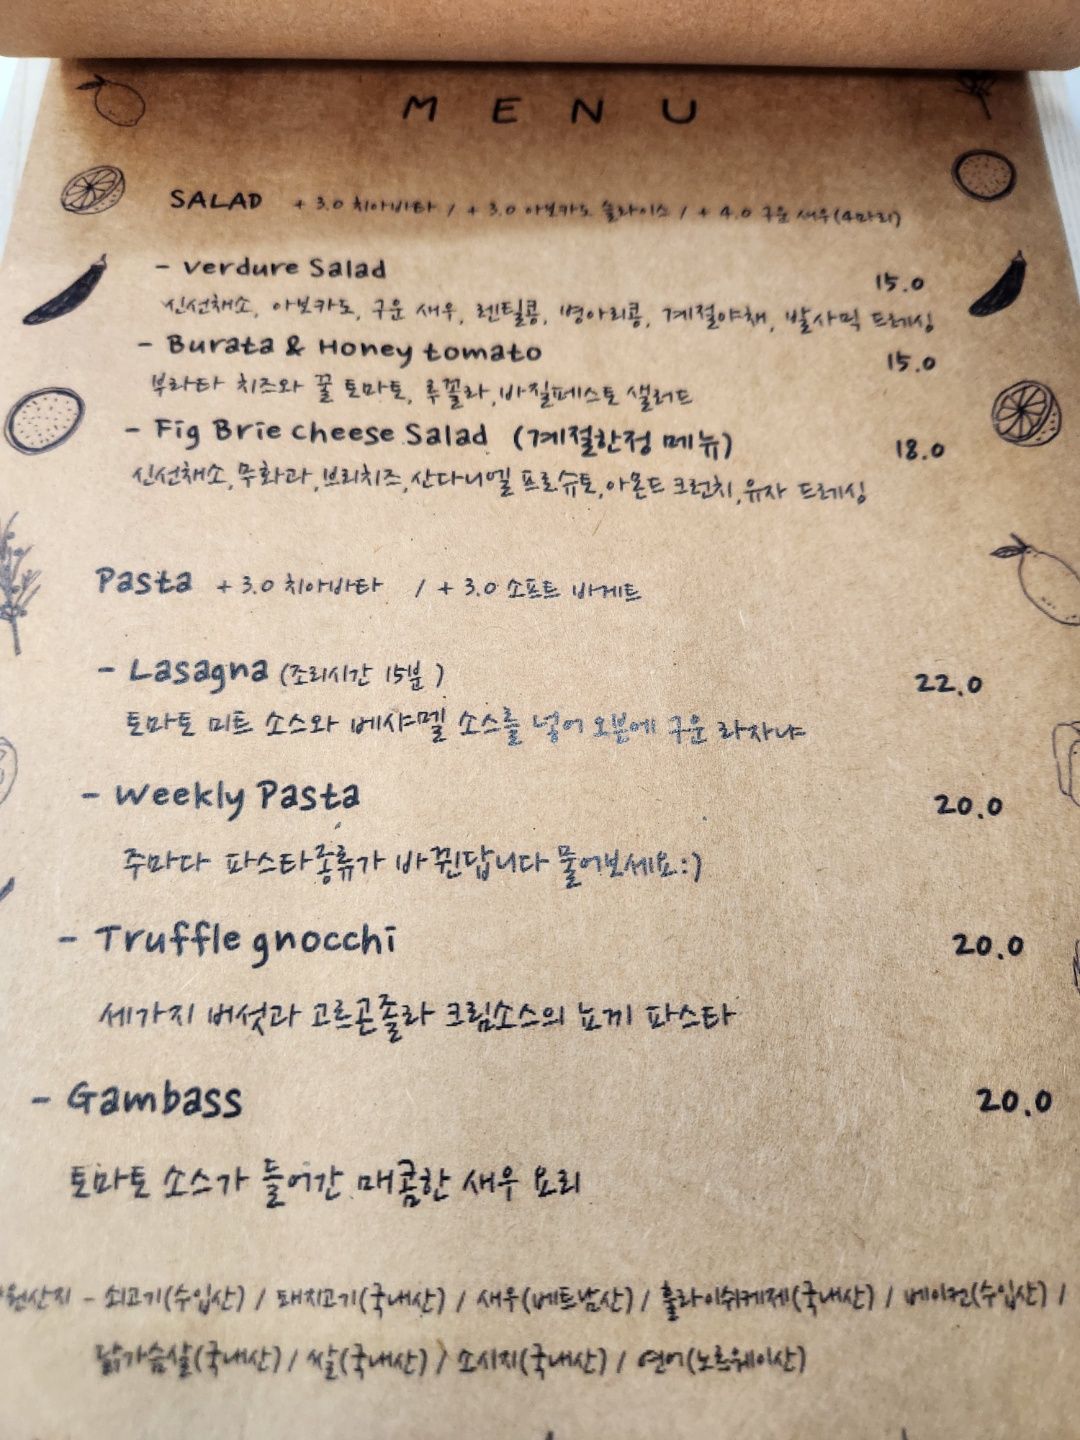 MENU
SALAD + 3.0 치아바타 / + 3.0 아보카도 슬라이스 / + 4.0 구운 새우(4마리)
- Verdure Salad 15.0
신선채소, 아보카도, 구운 새우, 렌틸콩, 병아리콩, 계절야채, 발사믹 드레싱
- Burata & Honey tomato 15.0
부라타 치즈와 꿀 토마토, 루꼴라, 바질페스토 샐러드
- Fig Brie cheese Salad (계절한정 메뉴) 18.0
신선채소, 무화과, 브리치즈, 산다니엘 프로슈토, 아몬드 크런치, 유자 드레싱
Pasta + 3.0 치아바타 / + 3.0 소프트 바게트
- Lasagna (조리시간 15분) 22.0
토마토 미트 소스와 베샤멜 소스를 넣어 오븐에 구운 라자냐
- Weekly Pasta 20.0
주마다 파스타종류가 바뀐답니다 물어보세요:)
- Truffle gnocchi 20.0
세가지 버섯과 고르곤졸라 크림소스의 뇨끼 파스타
- Gambass 20.0
토마토 소스가 들어간 매콤한 새우 요리
원산지 - 쇠고기(수입산) / 돼지고기(국내산) / 새우(베트남산) / 훌라이쉬케제(국내산) / 베이컨(수입산) /
닭가슴살(국내산) / 쌀(국내산) / 소시지(국내산) / 연어(노르웨이산)